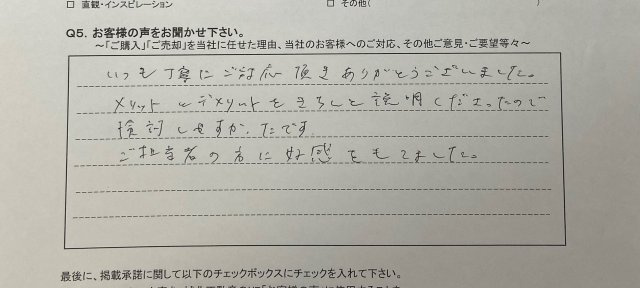 □ 直観・インスピレーション　□ その他(　)
Q5. お客様の声をお聞かせ下さい。
～「ご購入」「ご売却」を当社に任せた理由、当社のお客様へのご対応、その他ご意見・ご要望等々～
いつも丁寧にご対応頂きありがとうございました。
メリットとデメリットをきちんと説明しださったので
検討しやすかったです
ご担当者の方に好感をもてました。
最後に、掲載承諾に関して以下のチェックボックスにチェックを入れて下さい。